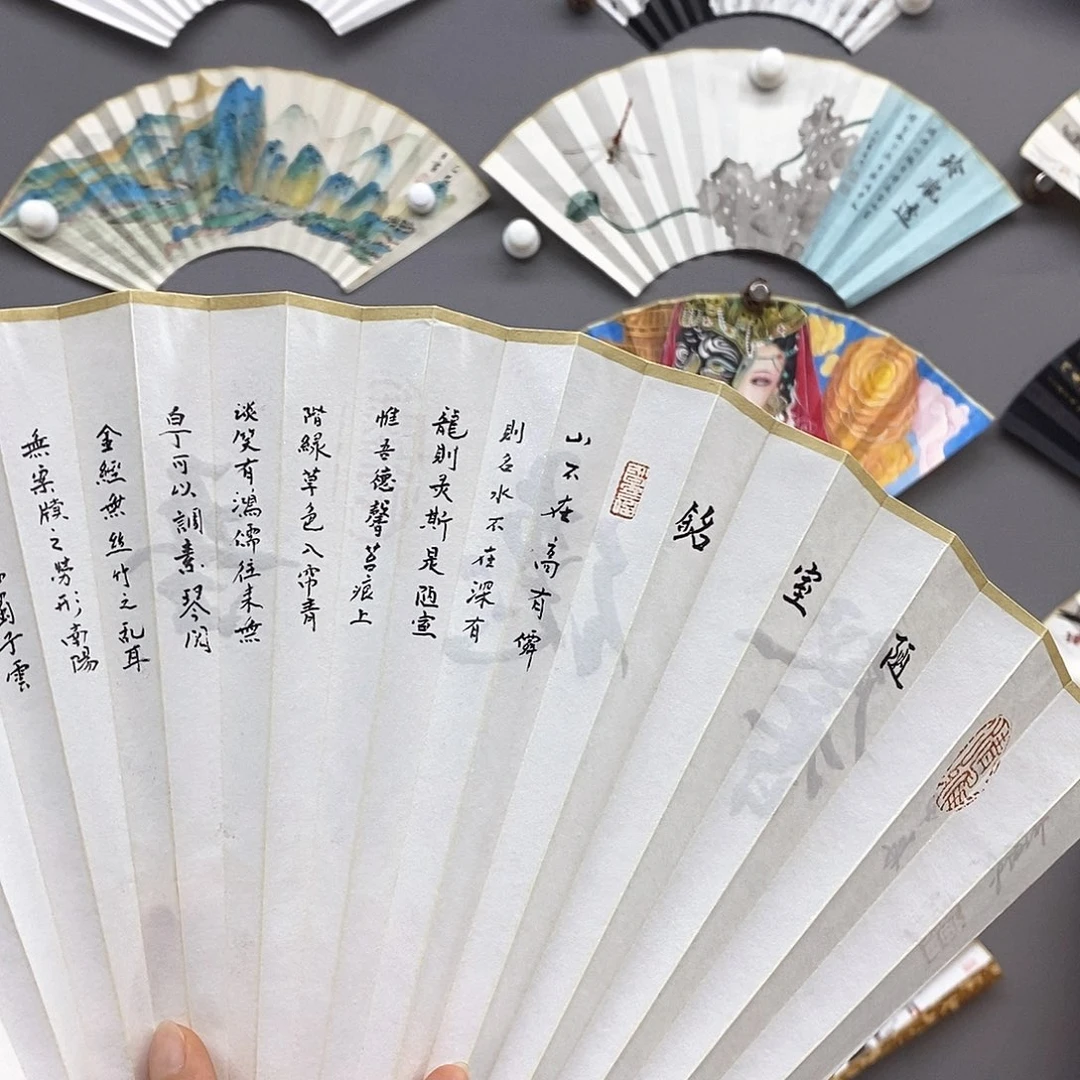 陋室銘
山不在高有僊
則名水不在深有
龍則灵斯是陋室
惟吾德馨苔痕上
階緑草色入帘青
谈笑有鴻儒往来無
白丁可以調素琴阅
金經無丝竹之乱耳
無案牘之勞形南陽
蜀子雲